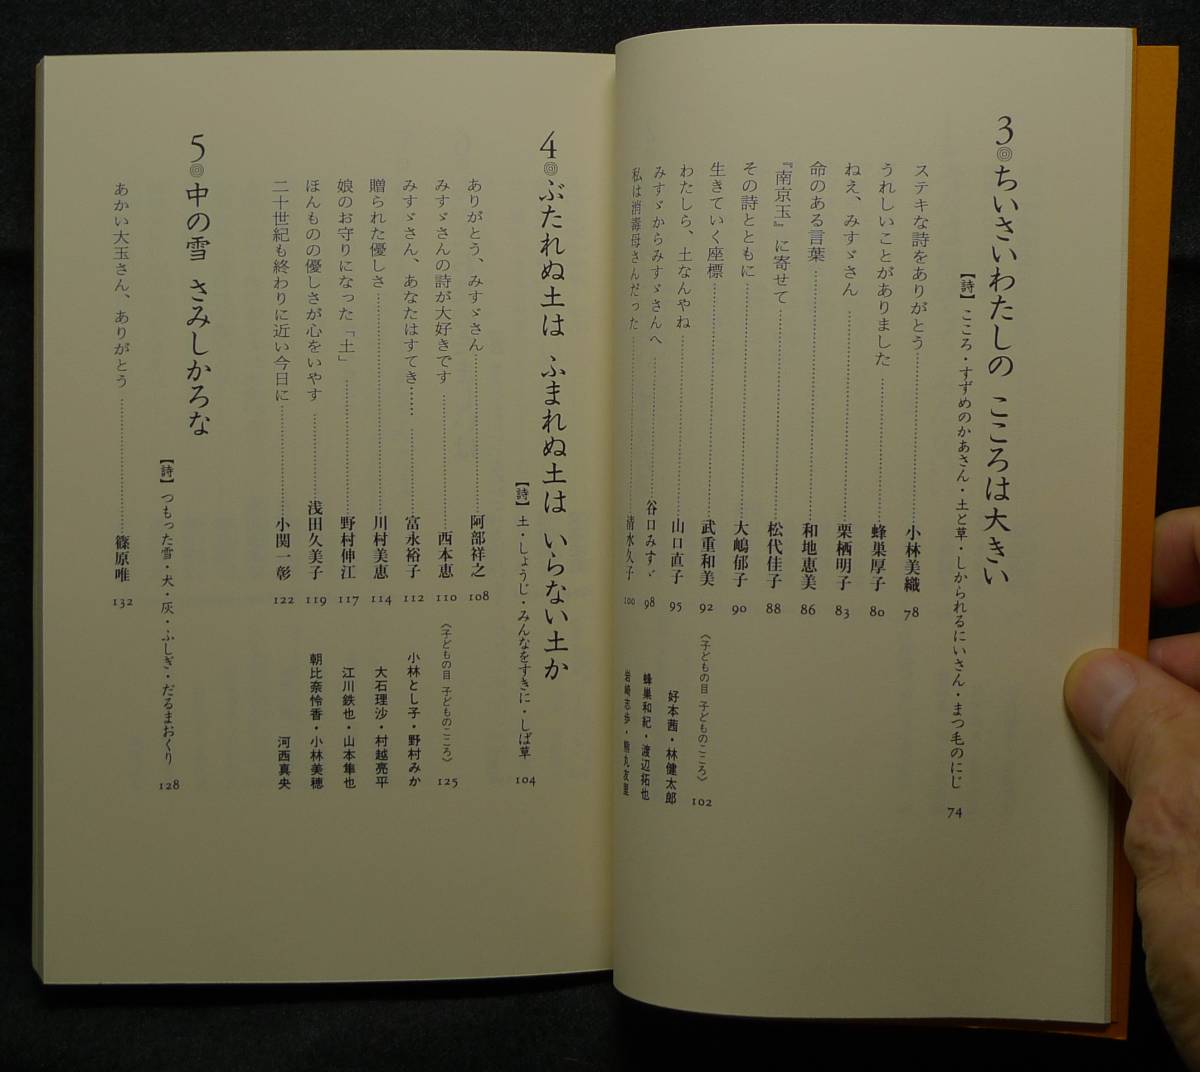 3 ちいさいわたしの こころは大きい
【詩】こころ・すずめのかあさん・土と草・しかられるにいさん・まつ毛のにじ 74
ステキな詩をありがとう……小林美織 78
うれしいことがありました……蜂巣厚子 80
ねえ、みすゞさん……栗栖明子 83
命のある言葉……和地恵美 86
『南京玉』に寄せて……松代佳子 88
その詩とともに……大嶋郁子 90
生きていく座標……武重和美 92
わたしら、土なんやね……山口直子 95
みすゞからみすゞさんへ……谷口みすゞ 98
私は消毒母さんだった……清水久子 100
〈子どもの目 子どものこころ〉 102
好本茜・林健太郎
蜂巣和紀・渡辺拓也
岩崎志歩・熊丸友里
4 ぶたれぬ土は ふまれぬ土は いらない土か
【詩】土・しょうじ・みんなをすきに・しば草 104
ありがとう、みすゞさん……阿部祥之 108
みすゞさんの詩が大好きです……西本恵 110
みすゞさん、あなたはすてき…… ……富永裕子 112
贈られた優しさ……川村美恵 114
娘のお守りになった「土」……野村伸江 117
ほんものの優しさが心をいやす……浅田久美子 119
二十世紀も終わりに近い今日に……小関一彰 122
〈子どもの目 子どものこころ〉 125
小林とし子・野村みか
大石理沙・村越亮平
江川鉄也・山本隼也
朝比奈怜香・小林美穂
河西真央
5 中の雪 さみしかろな
【詩】つもった雪・犬・灰・ふしぎ・だるまおくり 128
あかい大玉さん、ありがとう……篠原唯 132